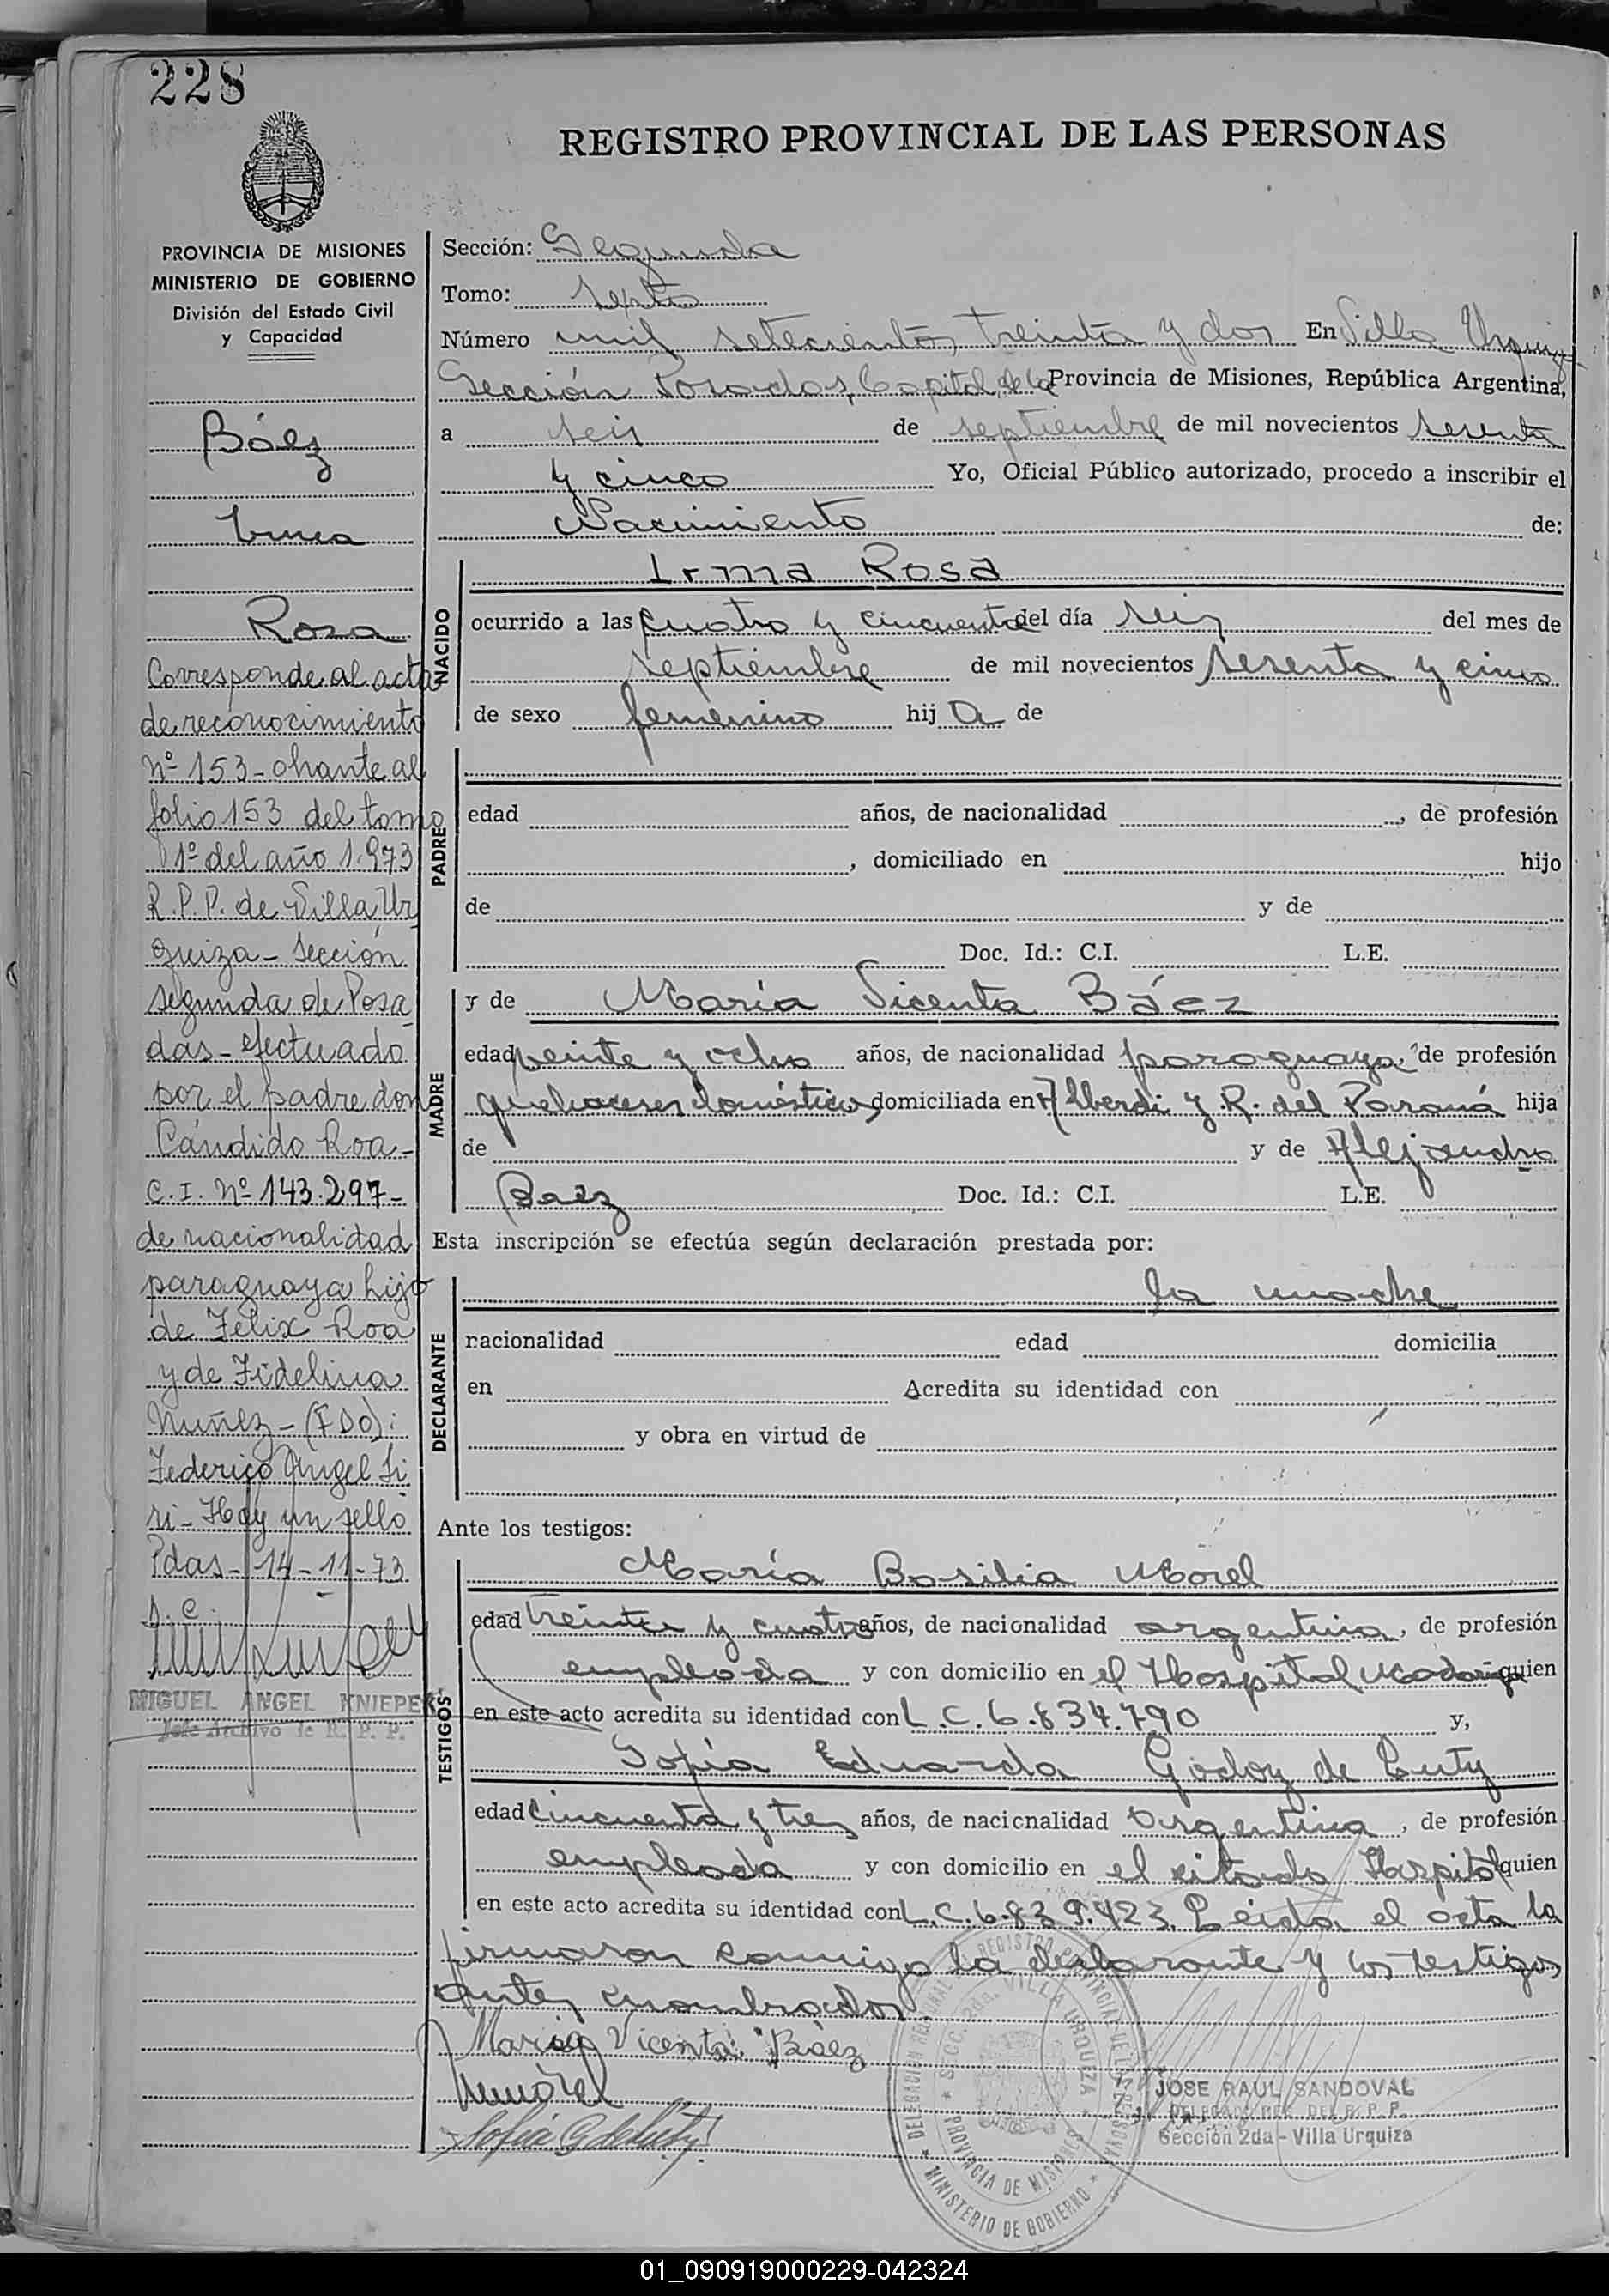 228
REGISTRO PROVINCIAL DE LAS PERSONAS
PROVINCIA DE MISIONES
MINISTERIO DE GOBIERNO
División del Estado Civil
y Capacidad
Báez
Irma
Rosa
Corresponde al acta
de reconocimiento
Nº 153 - obrante al
folio 153 del tomo
1º del año 1.973
R.P.P. de Villa Ur
quiza - Sección
segunda de Posa
das - efectuado
por el padre don
Cándido Roa -
C.I. Nº 143.297 -
de nacionalidad
paraguaya hijo
de Félix Roa
y de Fidelina
Nuñez - (FDO):
Federico Angel Si
ri - Hay un sello
Pdas - 14 - 11 - 73
MIGUEL ANGEL KNIEPERS
Jefe Archivo de R. P. P.
Sección: Segunda
Tomo: Sexto
Número mil setecientos treinta y dos En Villa Urquiza
Sección Posadas, Capital de la Provincia de Misiones, República Argentina,
a seis de septiembre de mil novecientos sesenta
y cinco Yo, Oficial Público autorizado, procedo a inscribir el
Nacimiento de:
NACIDO
Irma Rosa
ocurrido a las cuatro y cincuenta del día seis del mes de
septiembre de mil novecientos sesenta y cinco
de sexo femenino hij a de
PADRE
edad años, de nacionalidad , de profesión
, domiciliado en hijo
de y de
Doc. Id.: C.I. L.E.
MADRE
y de María Vicenta Báez
edad veinte y ocho años, de nacionalidad paraguaya, de profesión
quehaceres domésticos domiciliada en Alberdi y R. del Paraná hija
de y de Alejandra
Baez Doc. Id.: C.I. L.E.
Esta inscripción se efectúa según declaración prestada por:
DECLARANTE
la madre
nacionalidad edad domicilia
en Acredita su identidad con
y obra en virtud de
Ante los testigos:
TESTIGOS
María Basilia Morel
edad treinta y cuatro años, de nacionalidad argentina, de profesión
empleada y con domicilio en el Hospital Madariaga quien
en este acto acredita su identidad con L.C. 6.834.790 y,
Sofía Eduarda Godoy de Luty
edad cincuenta y tres años, de nacionalidad argentina, de profesión
empleada y con domicilio en el citado Hospital quien
en este acto acredita su identidad con L.C. 6.839.423. Leída el acta la
firmaron conmigo la declarante y los testigos
antes nombrados
María Vicenta Báez
Sofía G de Luty
DELEGACION REGIONAL REGISTRO PROVINCIAL DE LAS PERSONAS
SECC. 2da. VILLA URQUIZA
PROVINCIA DE MISIONES
MINISTERIO DE GOBIERNO
JOSE RAUL SANDOVAL
DELEGADO REG. DEL R. P. P.
Sección 2da - Villa Urquiza
01_090919000229-042324